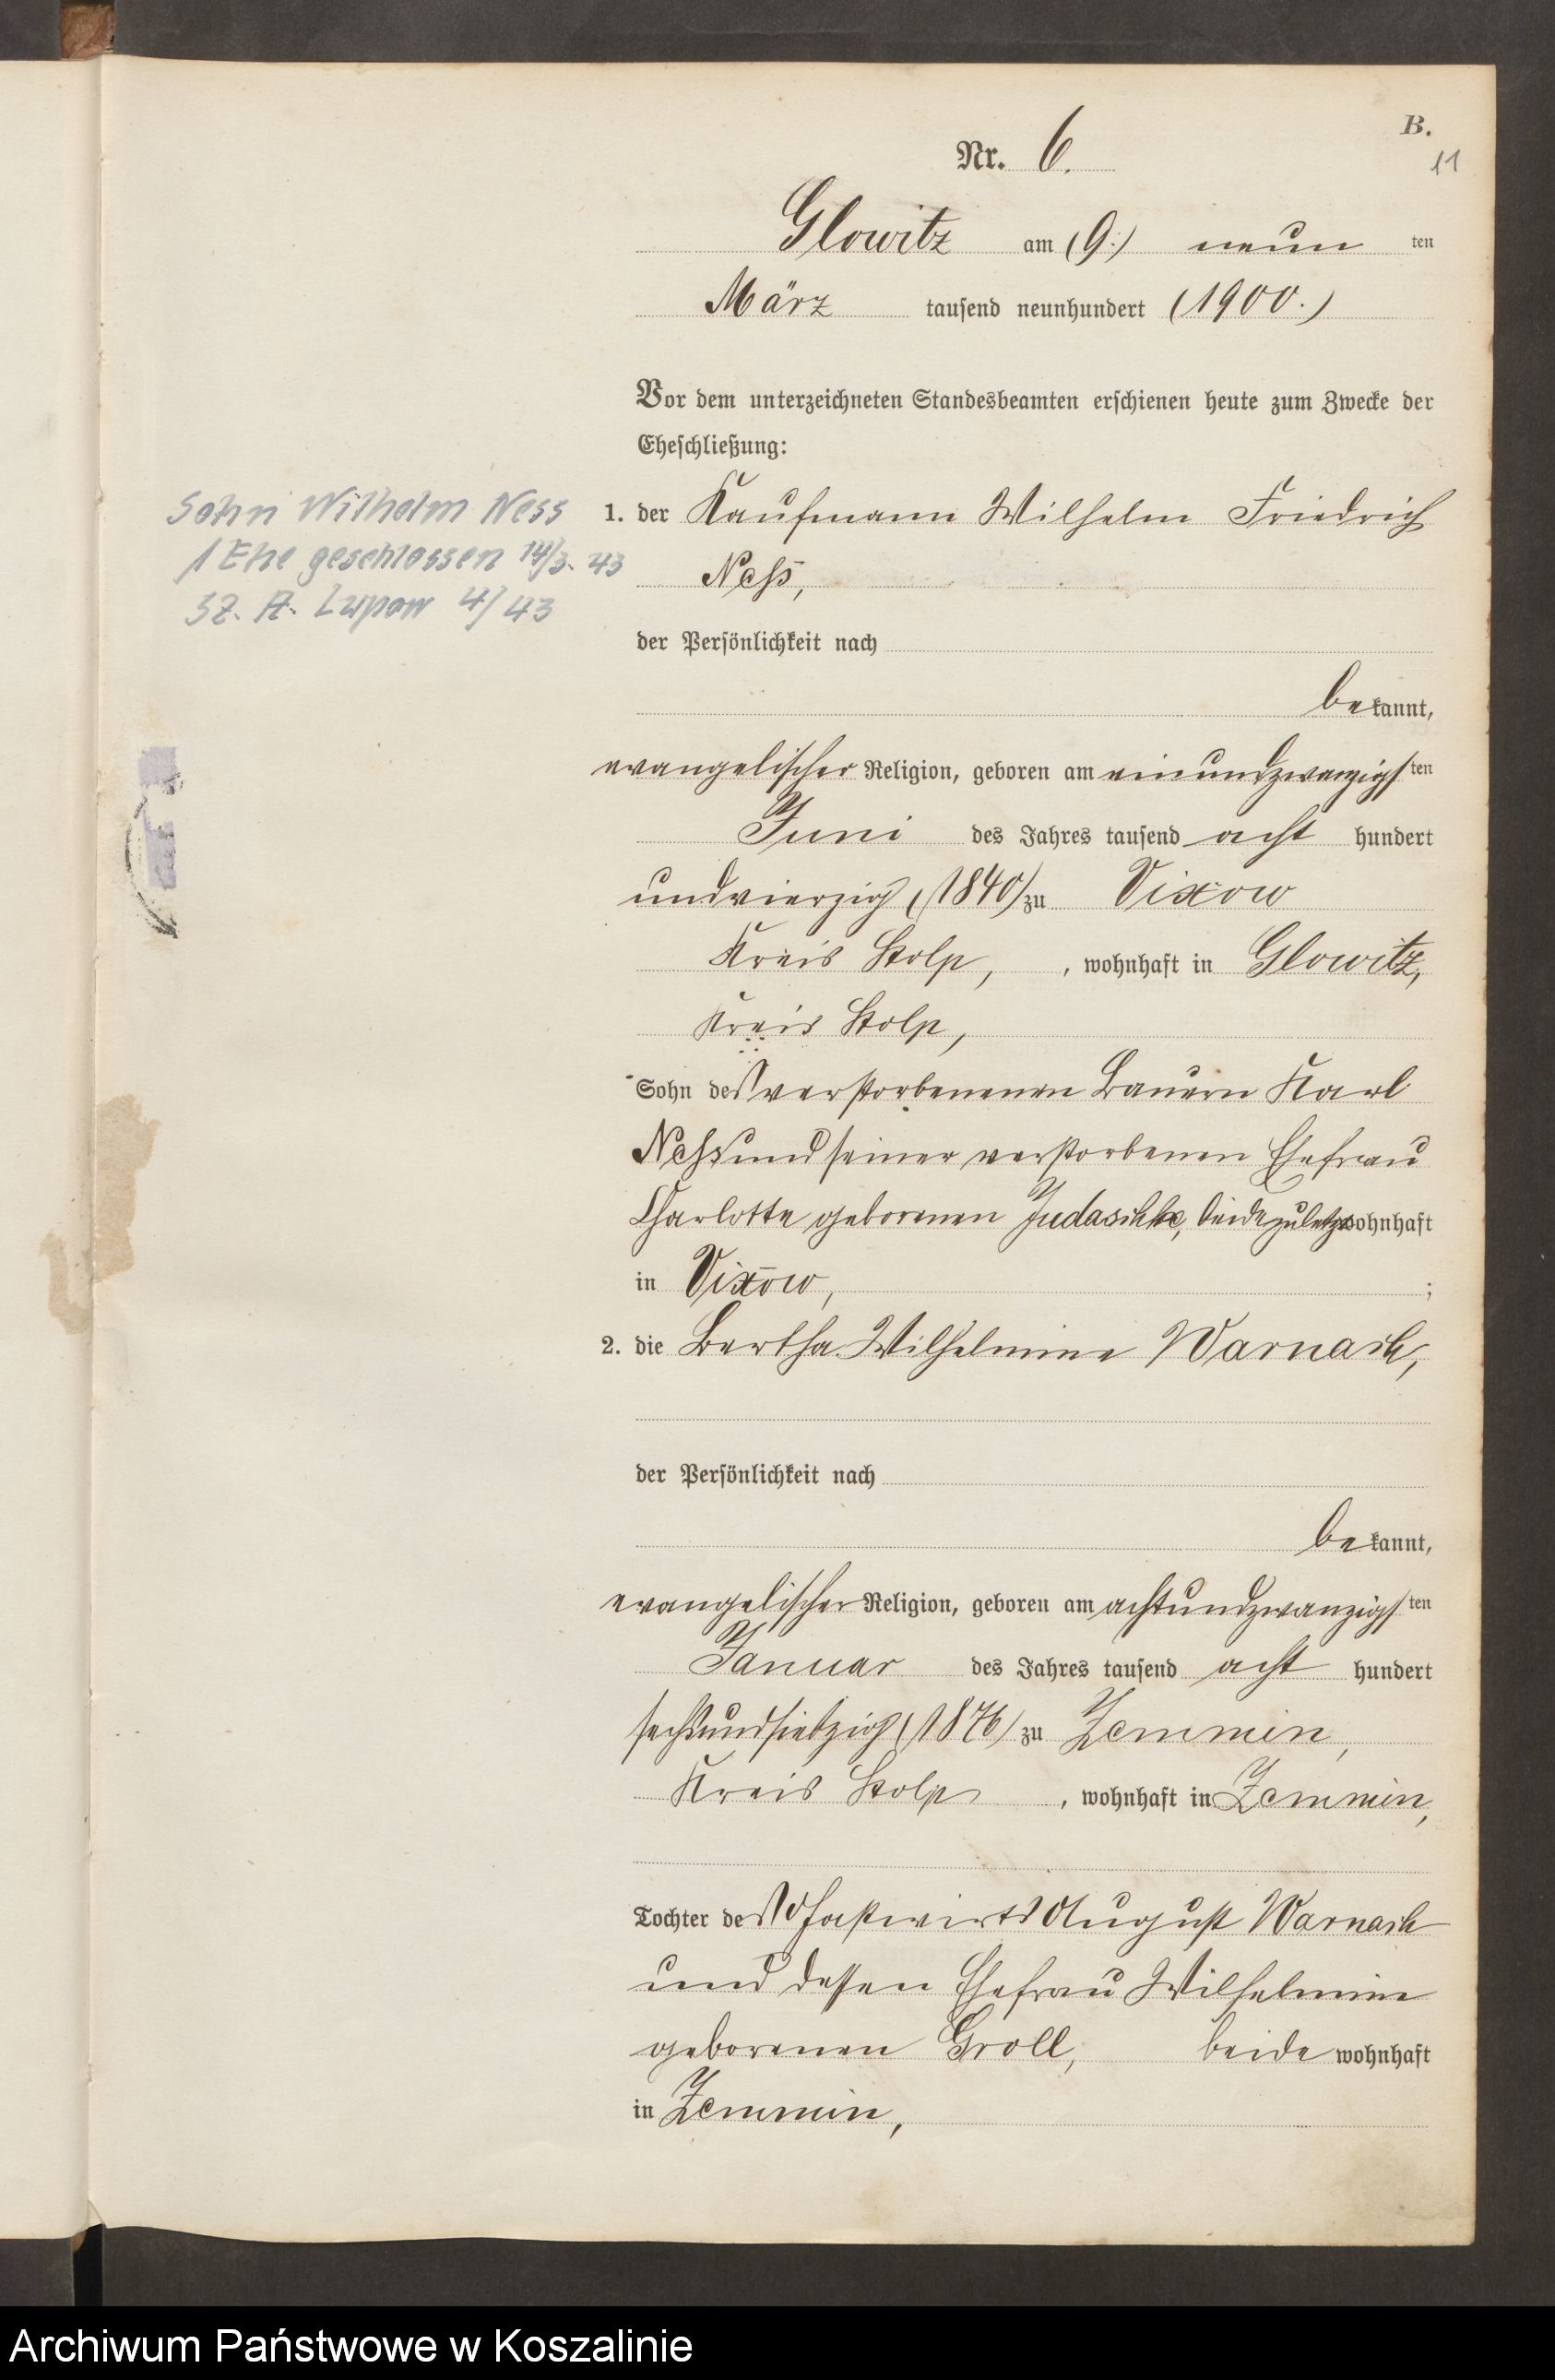 B.
11
Nr. 6.
Glowitz am (9.) neun ten
März tausend neunhundert (1900.)
Vor dem unterzeichneten Standesbeamten erschienen heute zum Zwecke der
Eheschließung:
Sohn Wilhelm Ness
1 Ehe geschlossen 14/3. 43
St. A. Lupow 4/43
1. der Kaufmann Wilhelm Friedrich
Neſs,
der Persönlichkeit nach
bekannt,
evangelischer Religion, geboren am einundzwanzigsten
Juni des Jahres tausend acht hundert
undvierzig (1840) zu Vixow
Kreis Stolp, , wohnhaft in Glowitz,
Kreis Stolp,
Sohn des verstorbenenen Bauern Karl
Neſs und seiner verstorbenen Ehefrau
Charlotte geborenen Judaschke, beide zuletzt wohnhaft
in Vixow, ;
2. die Bertha Wilhelmine Warnack,
der Persönlichkeit nach
bekannt,
evangelischer Religion, geboren am achtundzwanzigsten
Januar des Jahres tausend acht hundert
sechsundsiebzig (1876) zu Zemmin,
Kreis Stolp , wohnhaft in Zemmin,
Tochter des Gastwirts August Warnack
und dessen Ehefrau Wilhelmine
geborenen Groll, beide wohnhaft
in Zemmin,
Archiwum Państwowe w Koszalinie